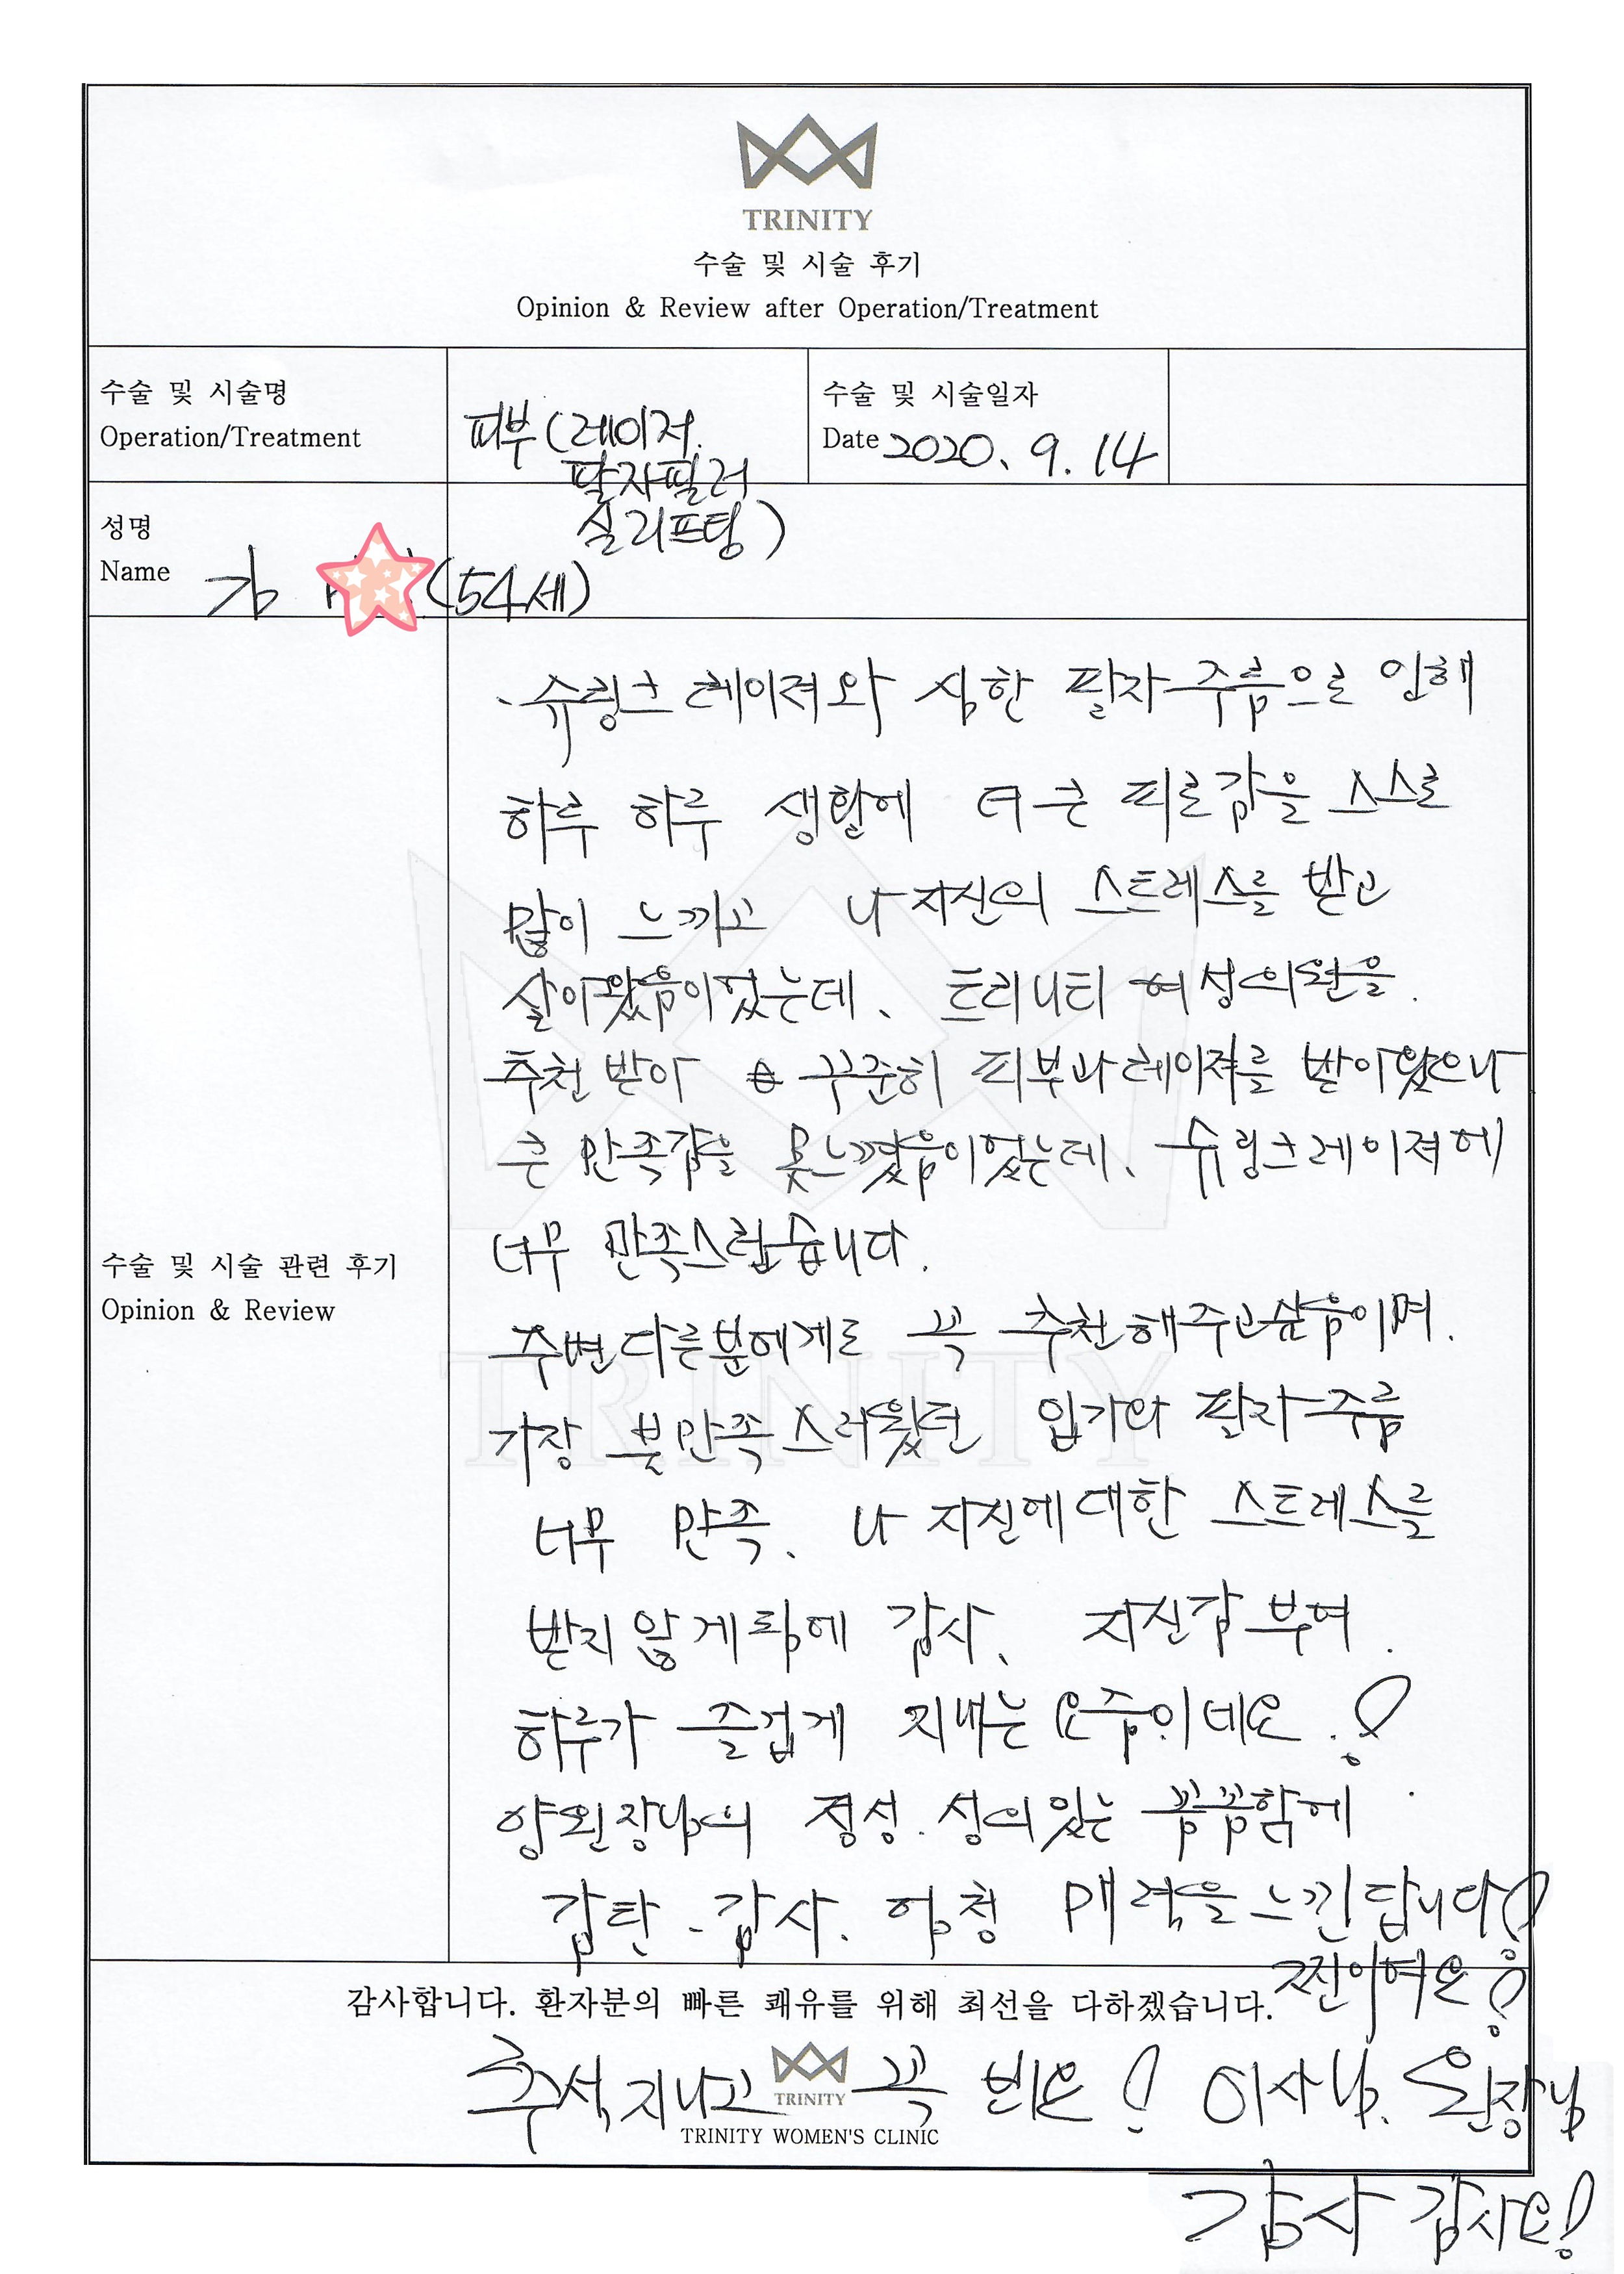 TRINITY
수술 및 시술 후기
Opinion & Review after Operation/Treatment
수술 및 시술명
Operation/Treatment
피부(레이저.
팔자필러
실리프팅)
수술 및 시술일자
Date 2020. 9. 14
성명
Name 김 (54세)
수술 및 시술 관련 후기
Opinion & Review
- 슈링크 레이져와 심한 팔자주름으로 인해
하루 하루 생활에 더 큰 피로감을 스스로
많이 느끼고 나 자신의 스트레스를 받고
살아왔음이었는데、 트리니티 여성의원을.
추천 받아 꾸준히 피부과 레이져를 받아왔으나
큰 만족감을 못느꼈음이었는데、 슈링크레이져에
너무 만족스럽습니다.
주변다른분에게도 꼭 추천해주고싶음이며.
가장 불만족스러웠던 입가와 팔자주름
너무 만족、 나 자신에대한 스트레스를
받지 않게 됨에 감사、 자신감 부여.
하루가 즐겁게 지내는 요즘이네요.!
양원장님의 정성. 성의있는 꼼꼼함에
감탄 - 감사. 엄청 매력을 느낀답니다!
찐이여요!
감사합니다. 환자분의 빠른 쾌유를 위해 최선을 다하겠습니다.
추석 지나고 꼭 뵈요! 이사님. 원장님
TRINITY
TRINITY WOMEN'S CLINIC
감사 감사요!
TRINITY